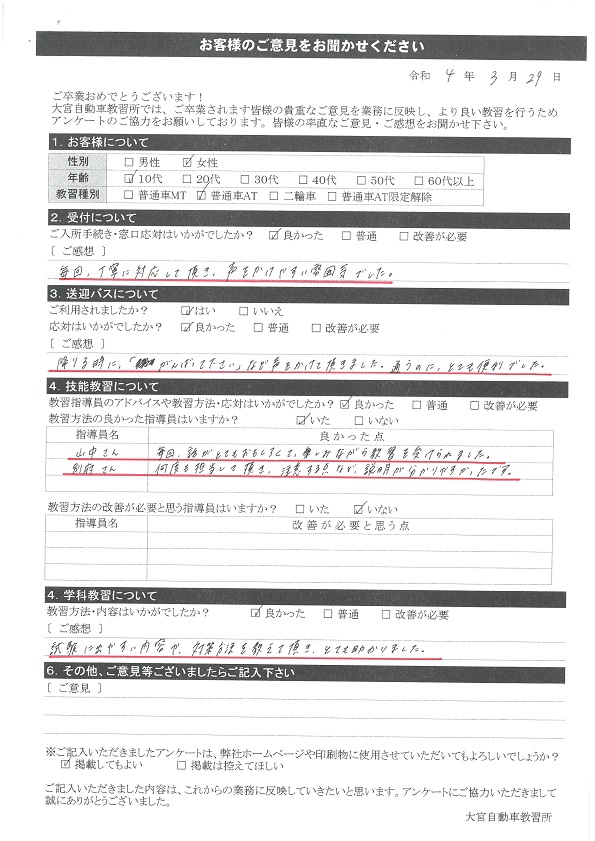 お客様のご意見をお聞かせください
令和 4 年 3 月 29 日
ご卒業おめでとうございます！
大宮自動車教習所では、ご卒業されます皆様の貴重なご意見を業務に反映し、より良い教習を行うため
アンケートのご協力をお願いしております。皆様の率直なご意見・ご感想をお聞かせ下さい。
1. お客様について
性別 □ 男性 ☑ 女性
年齢 ☑ 10代 □ 20代 □ 30代 □ 40代 □ 50代 □ 60代以上
教習種別 □ 普通車MT ☑ 普通車AT □ 二輪車 □ 普通車AT限定解除
2. 受付について
ご入所手続き・窓口応対はいかがでしたか？ ☑ 良かった □ 普通 □ 改善が必要
［ ご感想 ］
毎回、丁寧に対応して頂き、声をかけやすい雰囲気でした。
3. 送迎バスについて
ご利用されましたか？ ☑ はい □ いいえ
応対はいかがでしたか？ ☑ 良かった □ 普通 □ 改善が必要
［ ご感想 ］
降りる時に、「がんばって下さい」など声をかけて頂きました。通うのに、とても便利でした。
4. 技能教習について
教習指導員のアドバイスや教習方法・応対はいかがでしたか？ ☑ 良かった □ 普通 □ 改善が必要
教習方法の良かった指導員はいますか？ ☑ いた □ いない
指導員名 良かった点
山中さん 毎回、話がとてもおもしろくて、楽しみながら教習を受けられました。
別府さん 何度も担当して頂き、注意する点など、説明が分かりやすかったです。
教習方法の改善が必要と思う指導員はいますか？ □ いた ☑ いない
指導員名 改善が必要と思う点
4. 学科教習について
教習方法・内容はいかがでしたか？ ☑ 良かった □ 普通 □ 改善が必要
［ ご感想 ］
試験に出やすい内容や、対策方法を教えて頂き、とても助かりました。
6. その他、ご意見等ございましたらご記入下さい
［ ご意見 ］
※ご記入いただきましたアンケートは、弊社ホームページや印刷物に使用させていただいてもよろしいでしょうか？
☑ 掲載してもよい □ 掲載は控えてほしい
ご記入いただきました内容は、これからの業務に反映していきたいと思います。アンケートにご協力いただきまして
誠にありがとうございました。
大宮自動車教習所